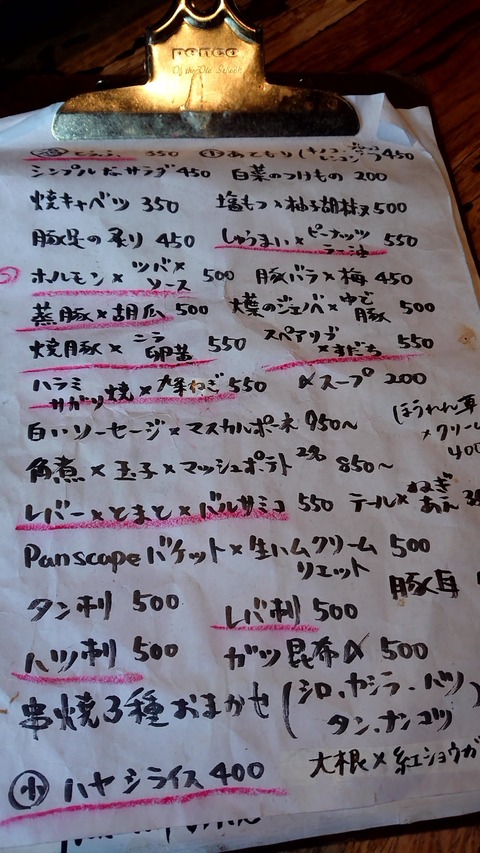 penco
350 あてもり 450
シンプルなサラダ 450 白菜のつけもの 200
焼キャベツ 350 塩もつ×柚子胡椒 500
豚足の炙り 450 しゅうまい×ピーナッツラー油 550
ホルモン×ツバメソース 500 豚バラ×梅 450
蒸豚×胡瓜 500 大葉のジェノバ×ゆで豚 500
焼豚×ニラ卵黄 550 スペアリブ×すだち 550
ハラミサガリ焼×九条ねぎ 550 〆スープ 200
白いソーセージ×マスカルポーネ 950~ ほうれん草×クリーム 400
角煮×玉子×マッシュポテト 2コ 850~
レバー×とまと×バルサミコ 550 テール×ねぎあん
Panscapeバケット×生ハムクリームリエット 500
豚耳
タン刺 500 レバ刺 500
ハツ刺 500 ガツ昆布〆 500
串焼3種おまかせ(シロ、カシラ、ハツ タン、ナンコツ)
小 ハヤシライス 400 大根×紅ショウガ